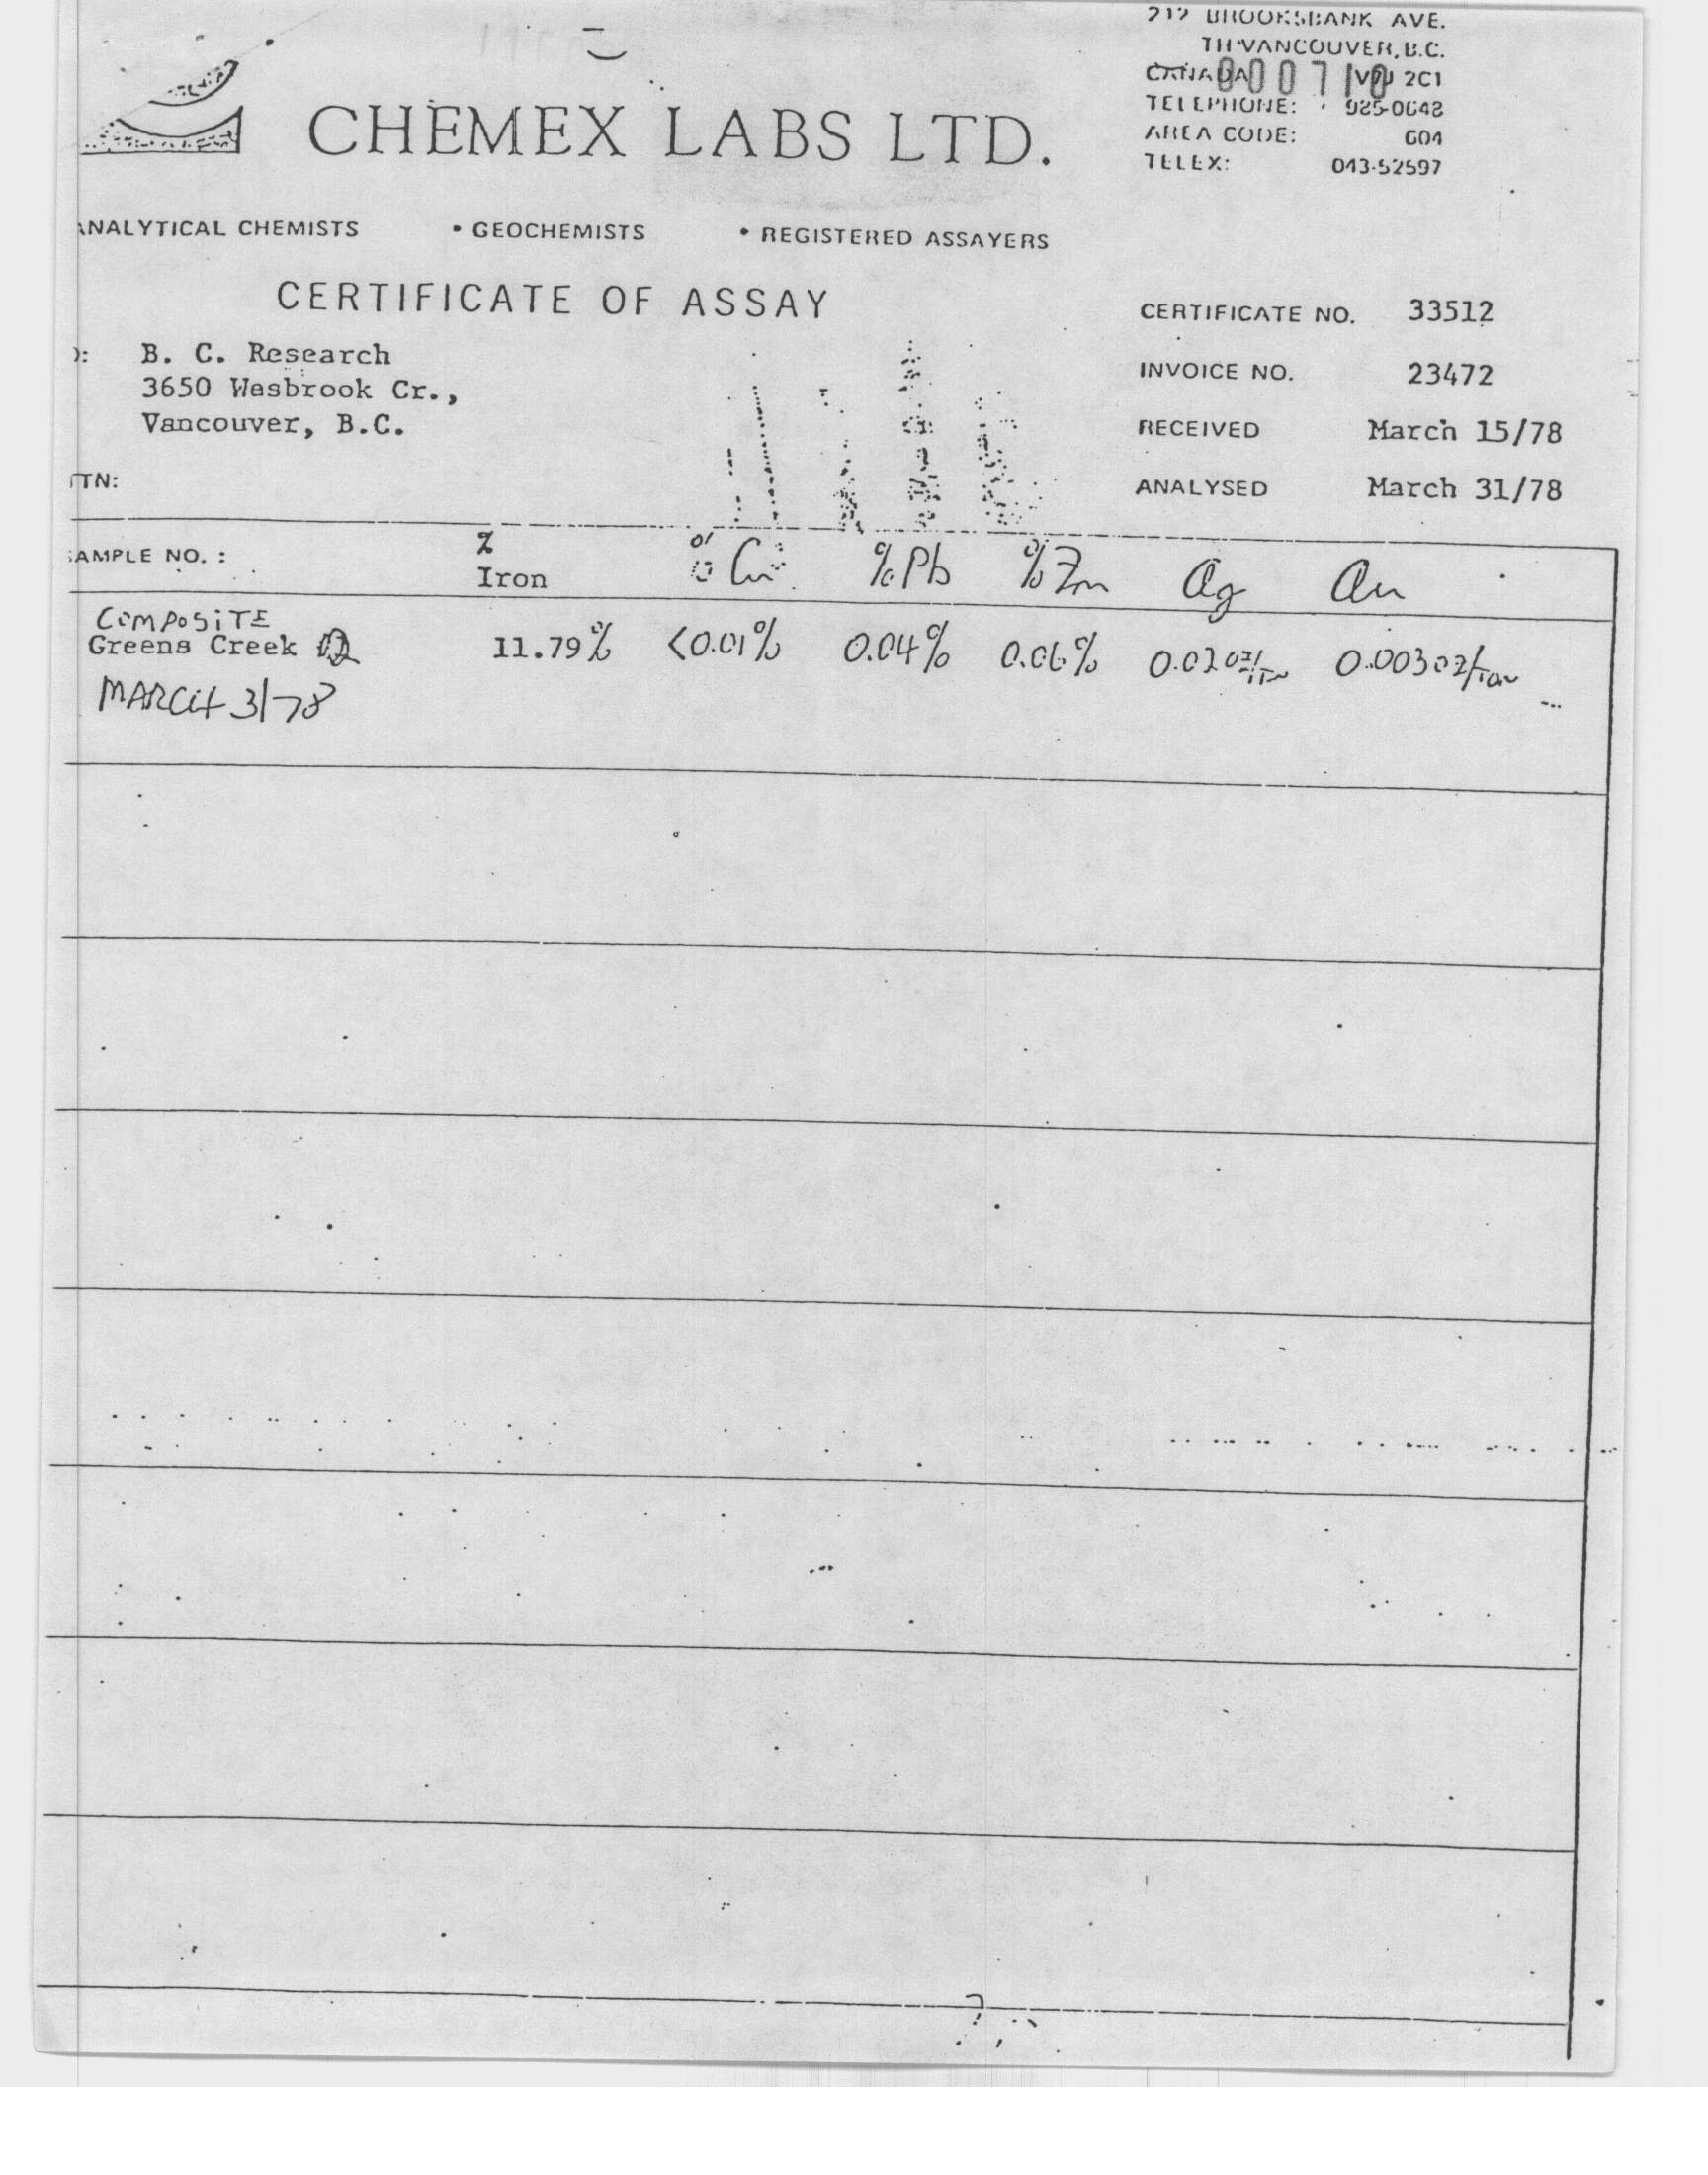 212 BROOKSBANK AVE.
TH VANCOUVER, B.C.
CANADA V7J 2C1
000710
TELEPHONE: 985-0648
AREA CODE: 604
TELEX: 043-52597
CHEMEX LABS LTD.
ANALYTICAL CHEMISTS • GEOCHEMISTS • REGISTERED ASSAYERS
CERTIFICATE OF ASSAY
CERTIFICATE NO. 33512
B. C. Research
3650 Wesbrook Cr.,
Vancouver, B.C.
INVOICE NO. 23472
RECEIVED March 15/78
TTN:
ANALYSED March 31/78
SAMPLE NO. : % Iron % Cu % Pb % Zn Ag Au
COMPOSITE
Greens Creek 11.79% <0.01% 0.04% 0.06% 0.02 oz/Ton 0.003 oz/Ton
MARCH 31/78